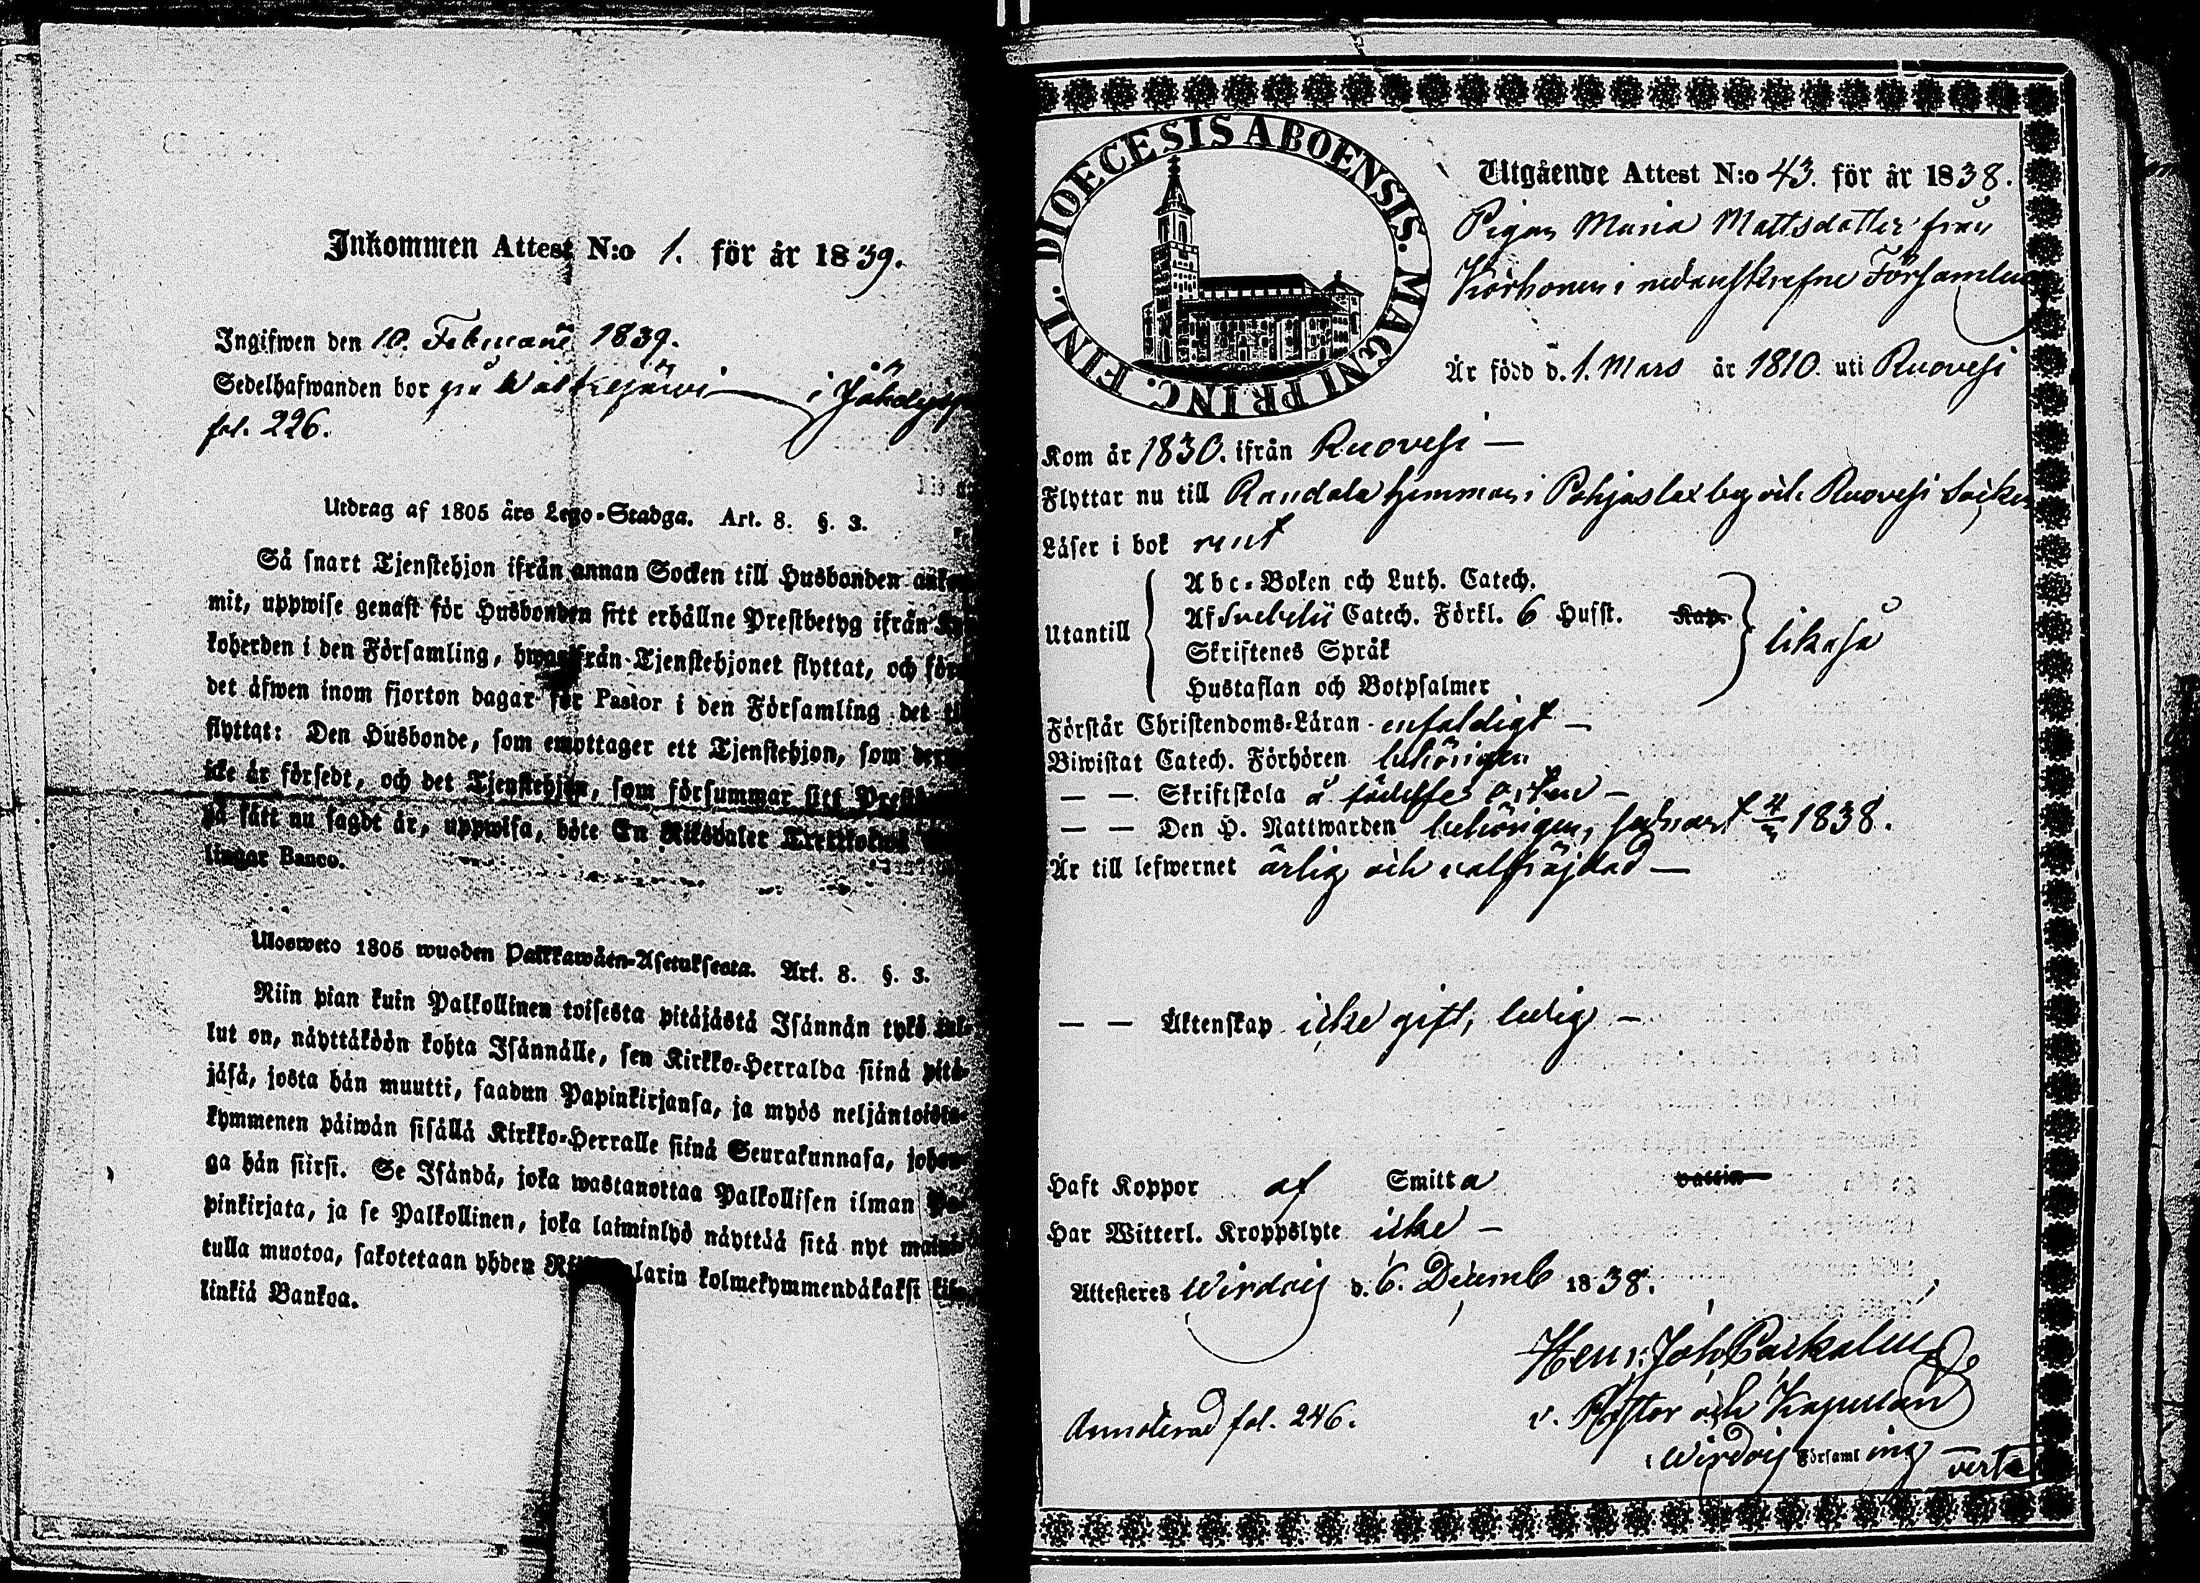 Inkommen Attest N:o 1. för år 1839.
Ingifwen den 10. Februarii 1839.
Sedelhafwanden bor på i
fol. 226.
Utdrag af 1805 års Lego-Stadga. Art. 8. §. 3.
Så snart Tjenstehjon ifrån annan Socken till Husbonden ankom-
mit, uppwise genast för Husbonden sitt erhållne Prestbetyg ifrån
koherden i den Församling, hwarifrån Tjenstehjonet flyttat, och före
det äfwen inom fjorton dagar för Pastor i den Församling det till
flyttat: Den Husbonde, som emottager ett Tjenstehjon, som dermed
icke är försedt, och det Tjenstehjon, som försummar sitt
på sätt nu sagdt är, uppwisa, böte En Riksdaler Trettiotwå
lingar Banco.
Ulosweto 1805 wuoden Palkkawäen-Asetuksesta. Art. 8. §. 3.
Niin pian kuin Palkollinen toisesta pitäjästä Isännän tykö tul-
lut on, näyttäköön kohta Isännälle, sen Kirkko-Herralda siinä pitä-
jäsä, josta hän muutti, saadun Papinkirjansa, ja myös neljäntoista-
kymmenen päiwän sisällä Kirkko-Herralle siinä Seurakunnasa, johon-
ga hän siirsi. Se Isändä, joka wastanottaa Palkollisen ilman Pa-
pinkirjata, ja se Palkollinen, joka laiminlyö näyttää sitä nyt mainit-
tulla muotoa, sakotetaan yhden kolmekymmendäkaksi kil-
linkiä Bankoa.
DIOECESIS ABOENSIS. MAGNI PRINC. FINL.
Utgående Attest N:o 43. för år 1838.
Pigan Maria Mattsdotter från
Körhonen i nedanskrefne Församling
Är född d. 1. Mars år 1810. uti Ruovesi
Kom år 1830. ifrån Ruovesi —
Flyttar nu till hemman i by och Ruovesi Socken
Läser i bok rent
Utantill
Abc-Boken och Luth. Catech.
Af Svebelii Catech. Förkl. 6 Hufst. Kap.
Skriftenes Språk
Hustaflan och Botpsalmer
likaså
Förstår Christendoms-Läran enfaldigt —
Biwistat Catech. Förhören behörigen
— — Skriftskola å födelse orten —
— — Den H. Nattwarden behörigen, 1838.
Är till lefwernet ärlig och välfräjdad —
— — Äktenskap icke gift, ledig —
Haft Koppor af Smitta vaccin
Har Witterl. Kroppslyte icke —
Attesteres Wirdois d. 6. Decemb 1838.
Henr: Joh:
v. Pastor och Kapellan
i Wirdois Församling —
Annoterad fol. 246.
verte